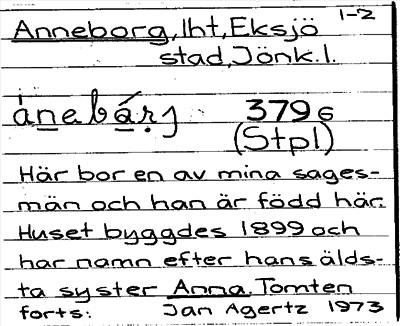 1-2
Anneborg, lht, Eksjö
stad, Jönk. l.
ànebárj 379 G
(Stpl)
Här bor en av mina sages-
män och han är född här.
Huset byggdes 1899 och
har namn efter hans älds-
ta syster Anna. Tomten
forts: Jan Agertz 1973